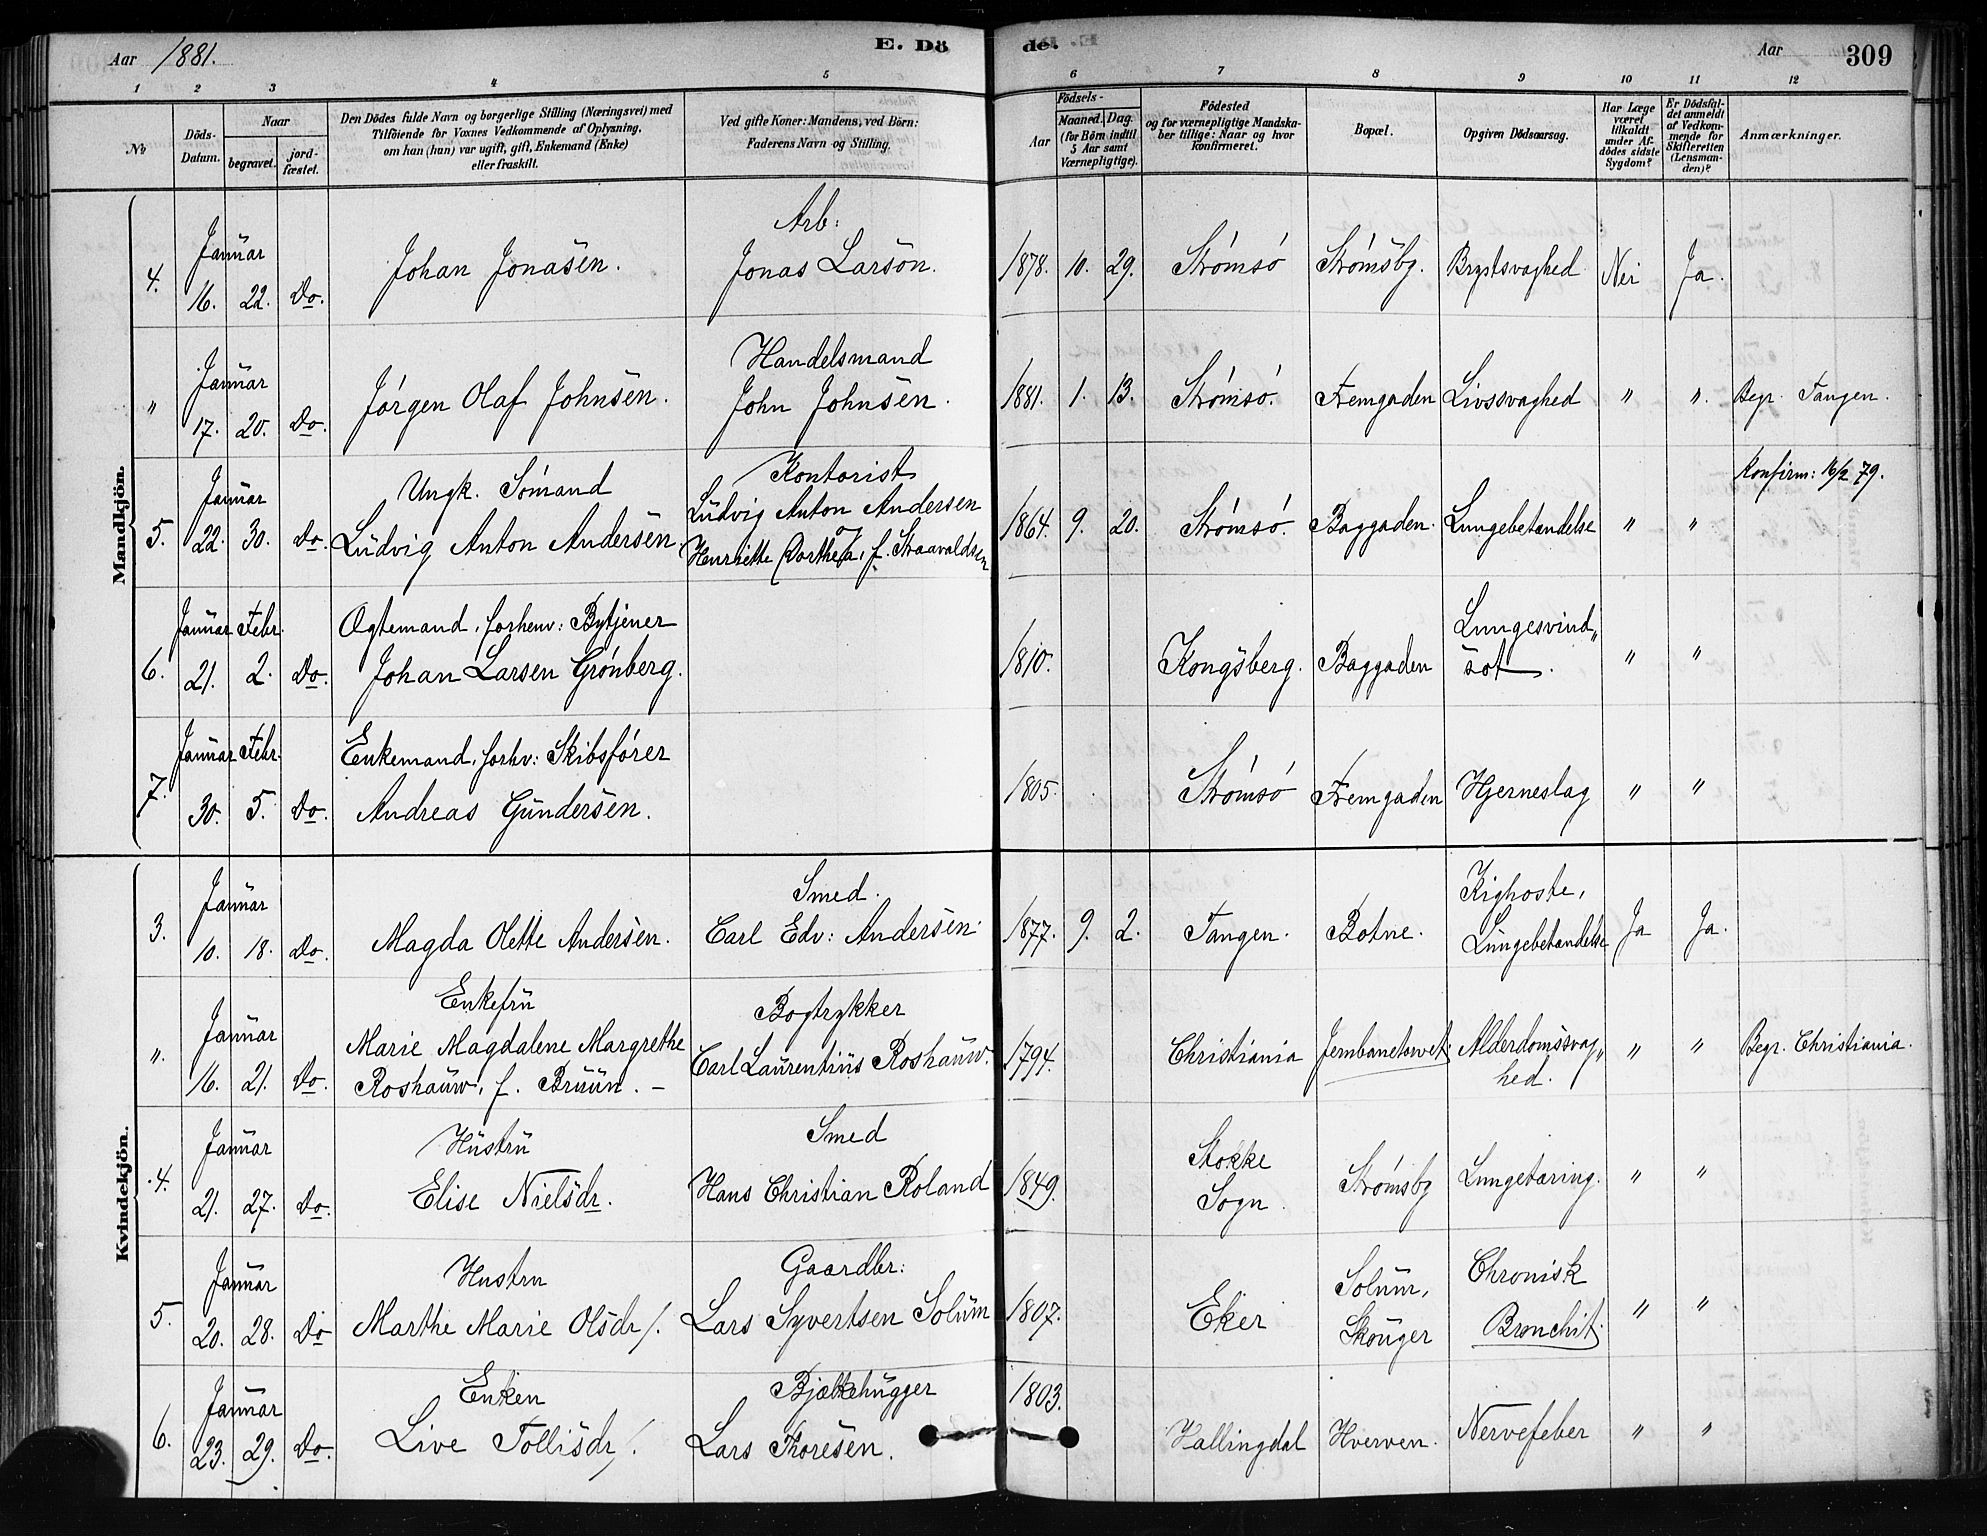 Aar 1881. E. Dö de. Aar 309
1 2 3 4 5 6 7 8 9 10 11 12
№
Döds-Datum.
Naar
begravet.
jord-fæstet.
Den Dödes fulde Navn og borgerlige Stilling (Næringsvei) med
Tilföiende for Voxnes Vedkommende af Oplysning,
om han (hun) var ugift, gift, Enkemand (Enke)
eller fraskilt.
Ved gifte Koner: Mandens, ved Börn:
Faderens Navn og Stilling.
Födsels-
Aar
Maaned. Dag.
(for Börn indtil
5 Aar samt
Værnepligtige).
Födested
og for værnepligtige Mandska-
ber tillige: Naar og hvor
konfirmeret.
Bopæl.
Opgiven Dödsaarsag.
Har Læge
været
tilkaldt
under Af-
dödes sidste
Sygdom?
Er Dödsfal-
det anmeldt
af Vedkom-
mende for
Skifteretten
(Lensman-
den)?
Anmærkninger.
Mandkjön.
Januar Arb:
4. 16. 22. Do. Johan Jonasen. Jonas Larson. 1878. 10. 29. Strømsø Strømsbg. Brystsvaghed Nei Ja.
Januar Handelsmand
" 17. 20. Do. Jørgen Olaf Johnsen. John Johnsen. 1881. 1. 13. Strømsø. Fremgaden Livssvaghed " ". Begr. Tangen.
Januar Ungk. Sømand Kontorist Konfirm: 16/2 79.
Ludvig Anton Andersen
5. 22. 30. Do. Ludvig Anton Andersen. Henriette Dorthea, f. Straavaldsen 1864. 9. 20. Strømsø. Baggaden. Lungebetændelse " "
Januar Febr. Ægtemand, forhenv: Bytjener Lungesvind"
6. 21. 2. Do. Johan Larsen Grønberg. 1810. Kongsberg. Baggaden sot. " "
Januar Febr. Enkemand, forhv: Skibsfører
7. 30. 5. Do. Andreas Gundersen. 1805. Strømsø Fremgaden Hjerneslag " "
Kvindekjön.
Januar Smed. Kighoste,
3. 10. 18. Do. Magda Olette Andersen. Carl Edv: Andersen. 1877. 9. 2. Tangen. Botne. Lungebetændelse Ja Ja.
Januar Enkefru Bogtrykker
Marie Magdalene Margrethe
". 16. 21. Do. Roshauw, f. Bruun. - Carl Laurentius Roshauw. 1794. Christiania Jernbanetorvet. Alderdomssvag" hed. " " Begr. Christiania.
Januar Hustru Smed Stokke
4. 21. 27. Do. Elise Nielsdr. Hans Christian Roland 1849. Sogn Strømsbg Lungetæring. " "
Januar Hustru Gaardbr: Solum, Chronisk
5. 20. 28. Do Marthe Marie Olsdr/. Lars Syvertsen Solum 1807. Eker Skouger Bronchit. " "
Januar Enken Bjælkehugger 1803.
6. 23. 29. Do. Live Tollisdr/. Lars Thoresen. Hallingdal Hverven. Nervefeber " "